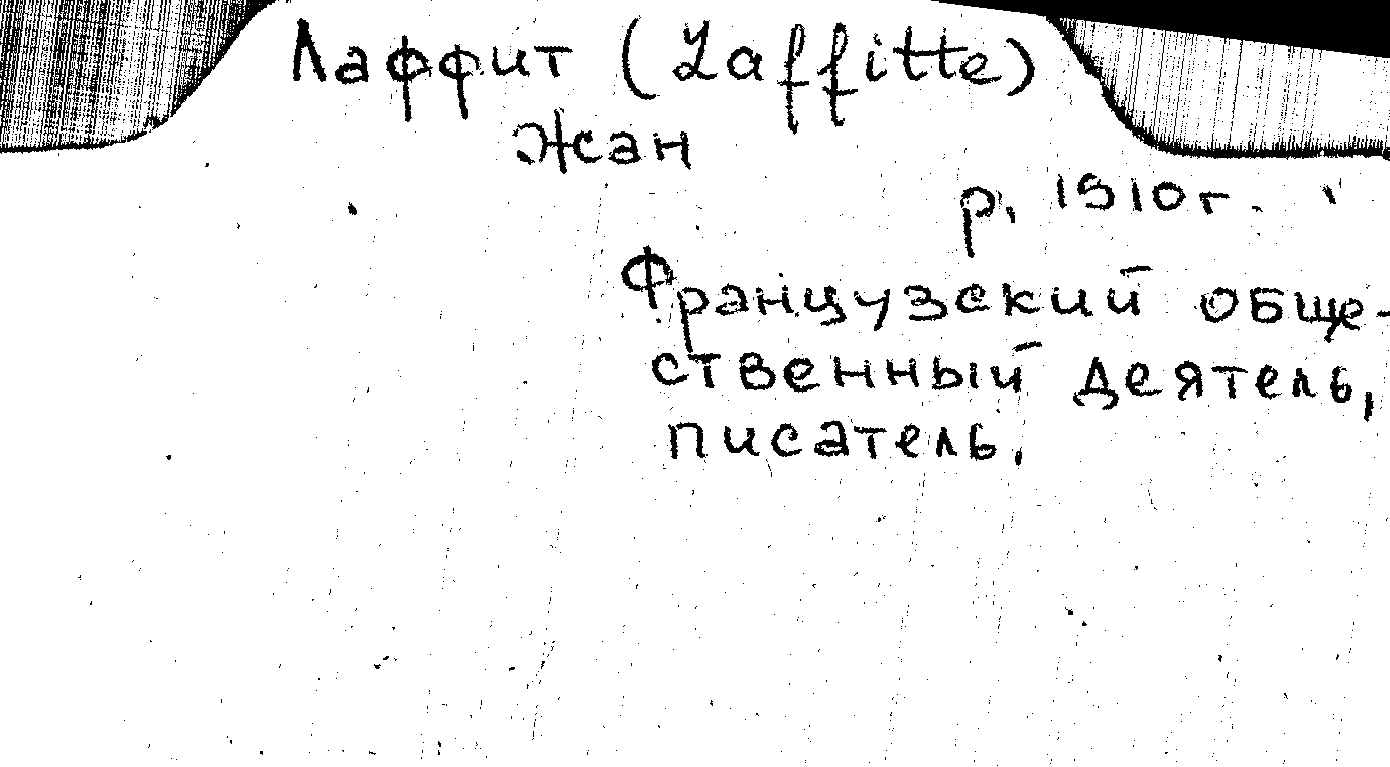 Лаффит (Laffitte)
Жан
р. 1910 г.
Французский обще-
ственный деятель,
писатель.